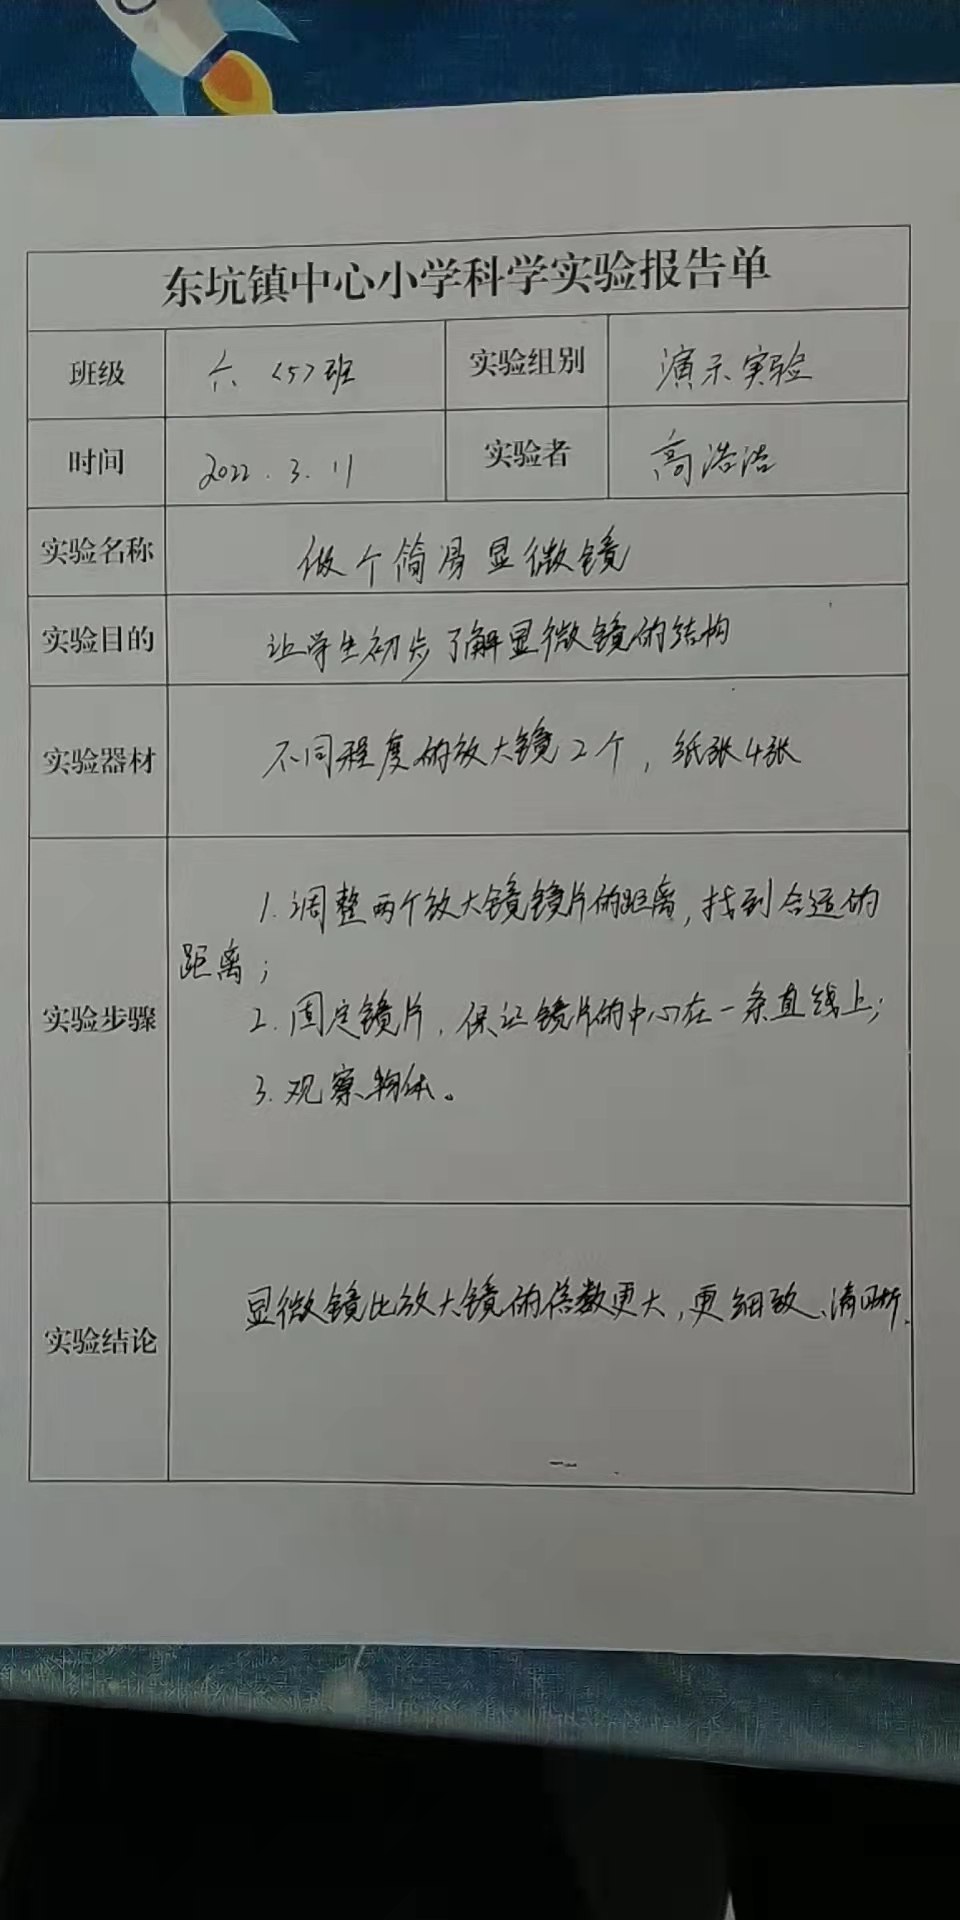 东坑镇中心小学科学实验报告单
班级 六〈5〉班 实验组别 演示实验
时间 2022.3.11 实验者 高浩浩
实验名称 做个简易显微镜
实验目的 让学生初步了解显微镜的结构
实验器材 不同程度的放大镜2个，纸张4张
实验步骤
1.调整两个放大镜镜片的距离，找到合适的
距离；
2.固定镜片，保证镜片的中心在一条直线上；
3.观察物体。
实验结论
显微镜比放大镜的倍数更大，更细致、清晰.